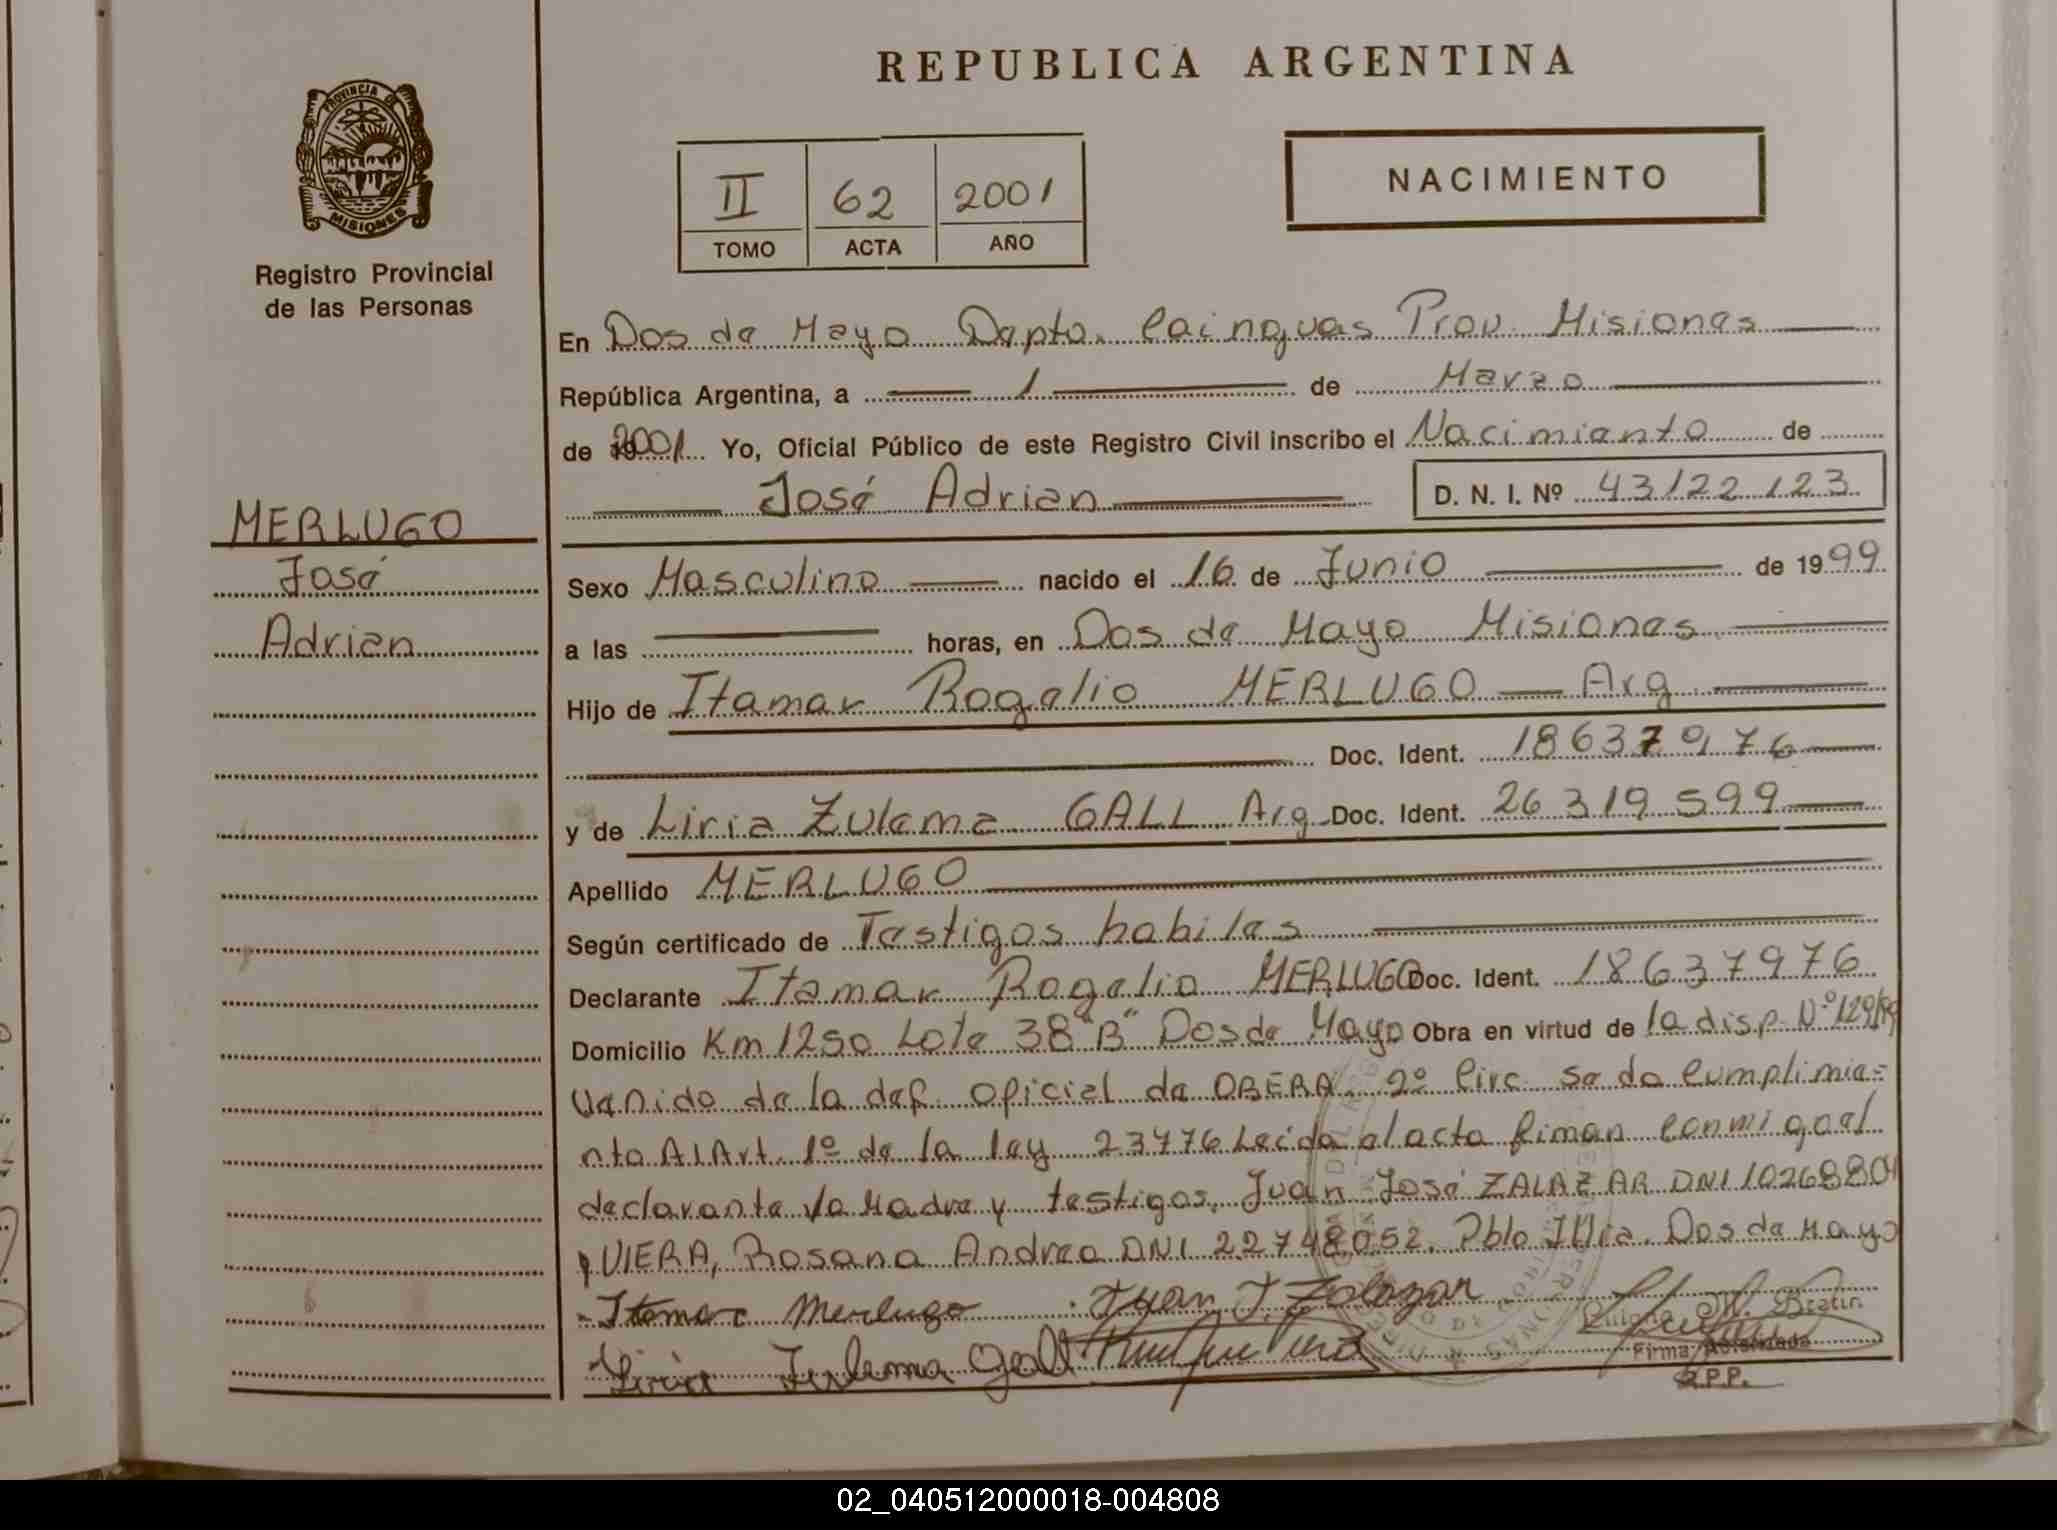 REPUBLICA ARGENTINA
PROVINCIA DE
MISIONES
Registro Provincial
de las Personas
II 62 2001
TOMO ACTA AÑO
NACIMIENTO
En Dos de Mayo Depto. Cainguas Prov. Misiones
República Argentina, a 1 de Marzo
de 2001 Yo, Oficial Público de este Registro Civil inscribo el Nacimiento de
José Adrian D. N. I. Nº 43122123
MERLUGO
José
Adrian
Sexo Masculino nacido el 16 de Junio de 1999
a las horas, en Dos de Mayo Misiones
Hijo de Itamar Rogelio MERLUGO Arg
Doc. Ident.
y de Liria Zulema GALL Arg Doc. Ident. 26319599
Apellido MERLUGO
Según certificado de Testigos habiles
Declarante Itamar Rogelio MERLUGO Doc. Ident. 18637976
Domicilio Km 1250 Lote 38 "B" Dos de Mayo Obra en virtud de la disp. Nº 129/99
Venido de la def. oficial de OBERA 2º Circ. se da Cumplimie=
nto Al Art. 1º de la ley 23776 Leida el acta firman conmigo el
declarante la Madre y testigos, Juan José ZALAZAR DNI 10268804
y VIERA, Rosana Andrea DNI 22748052. Pblo Illia. Dos de Mayo
Itamar Merlugo Juan J. Zalazar
Liria Zulema Gall
Firma Autorizada
R.P.P.
02_040512000018-004808